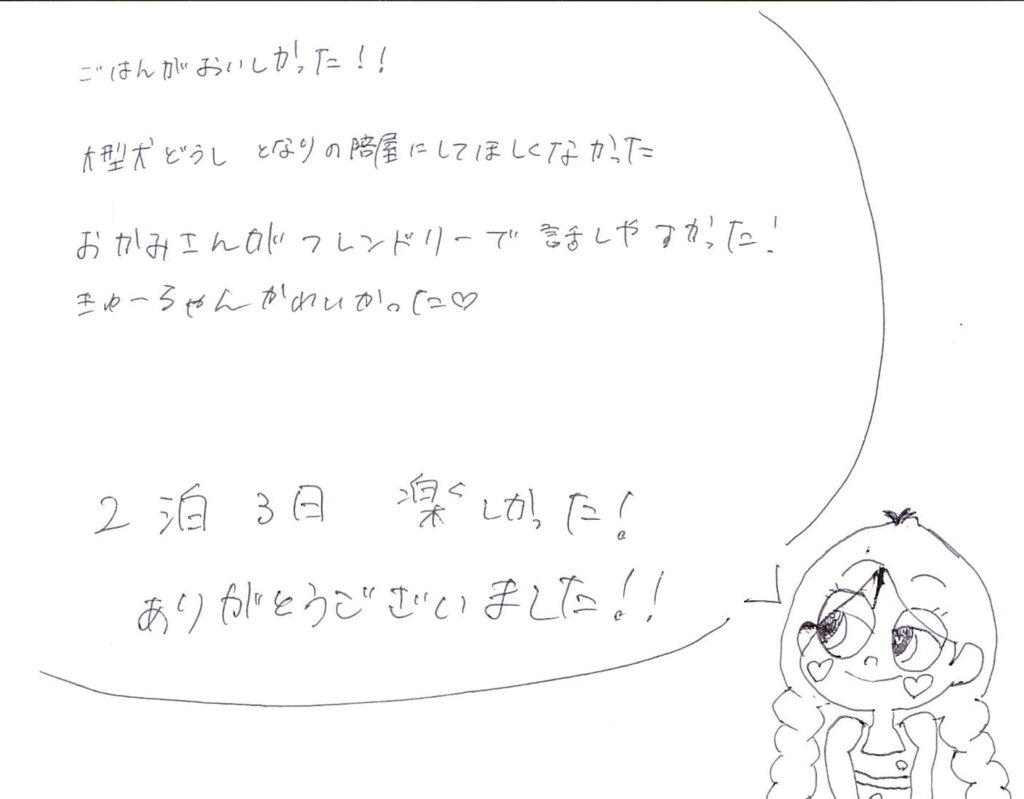 ごはんがおいしかった!!
大型犬どうし となりの部屋にしてほしくなかった
おかみさんがフレンドリーで 話しやすかった!
きゅーちゃんかわいかった♡
2泊3日 楽しかった!
ありがとうございました!!